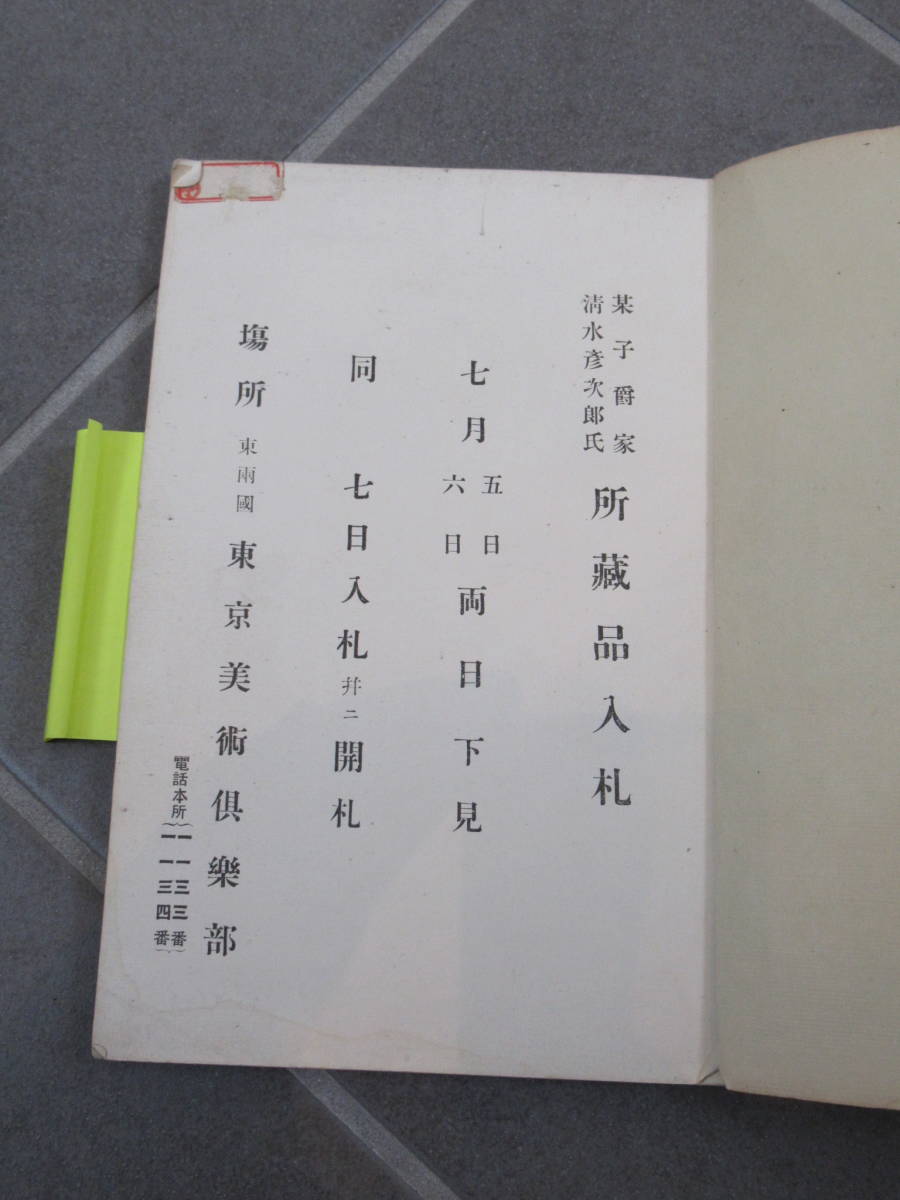 某子爵家
清水彦次郎氏
所藏品入札
七月
五日
六日
両日下見
同 七日入札幷ニ開札
塲所 東兩國 東京美術倶樂部
電話本所
一一三三番
一一三四番